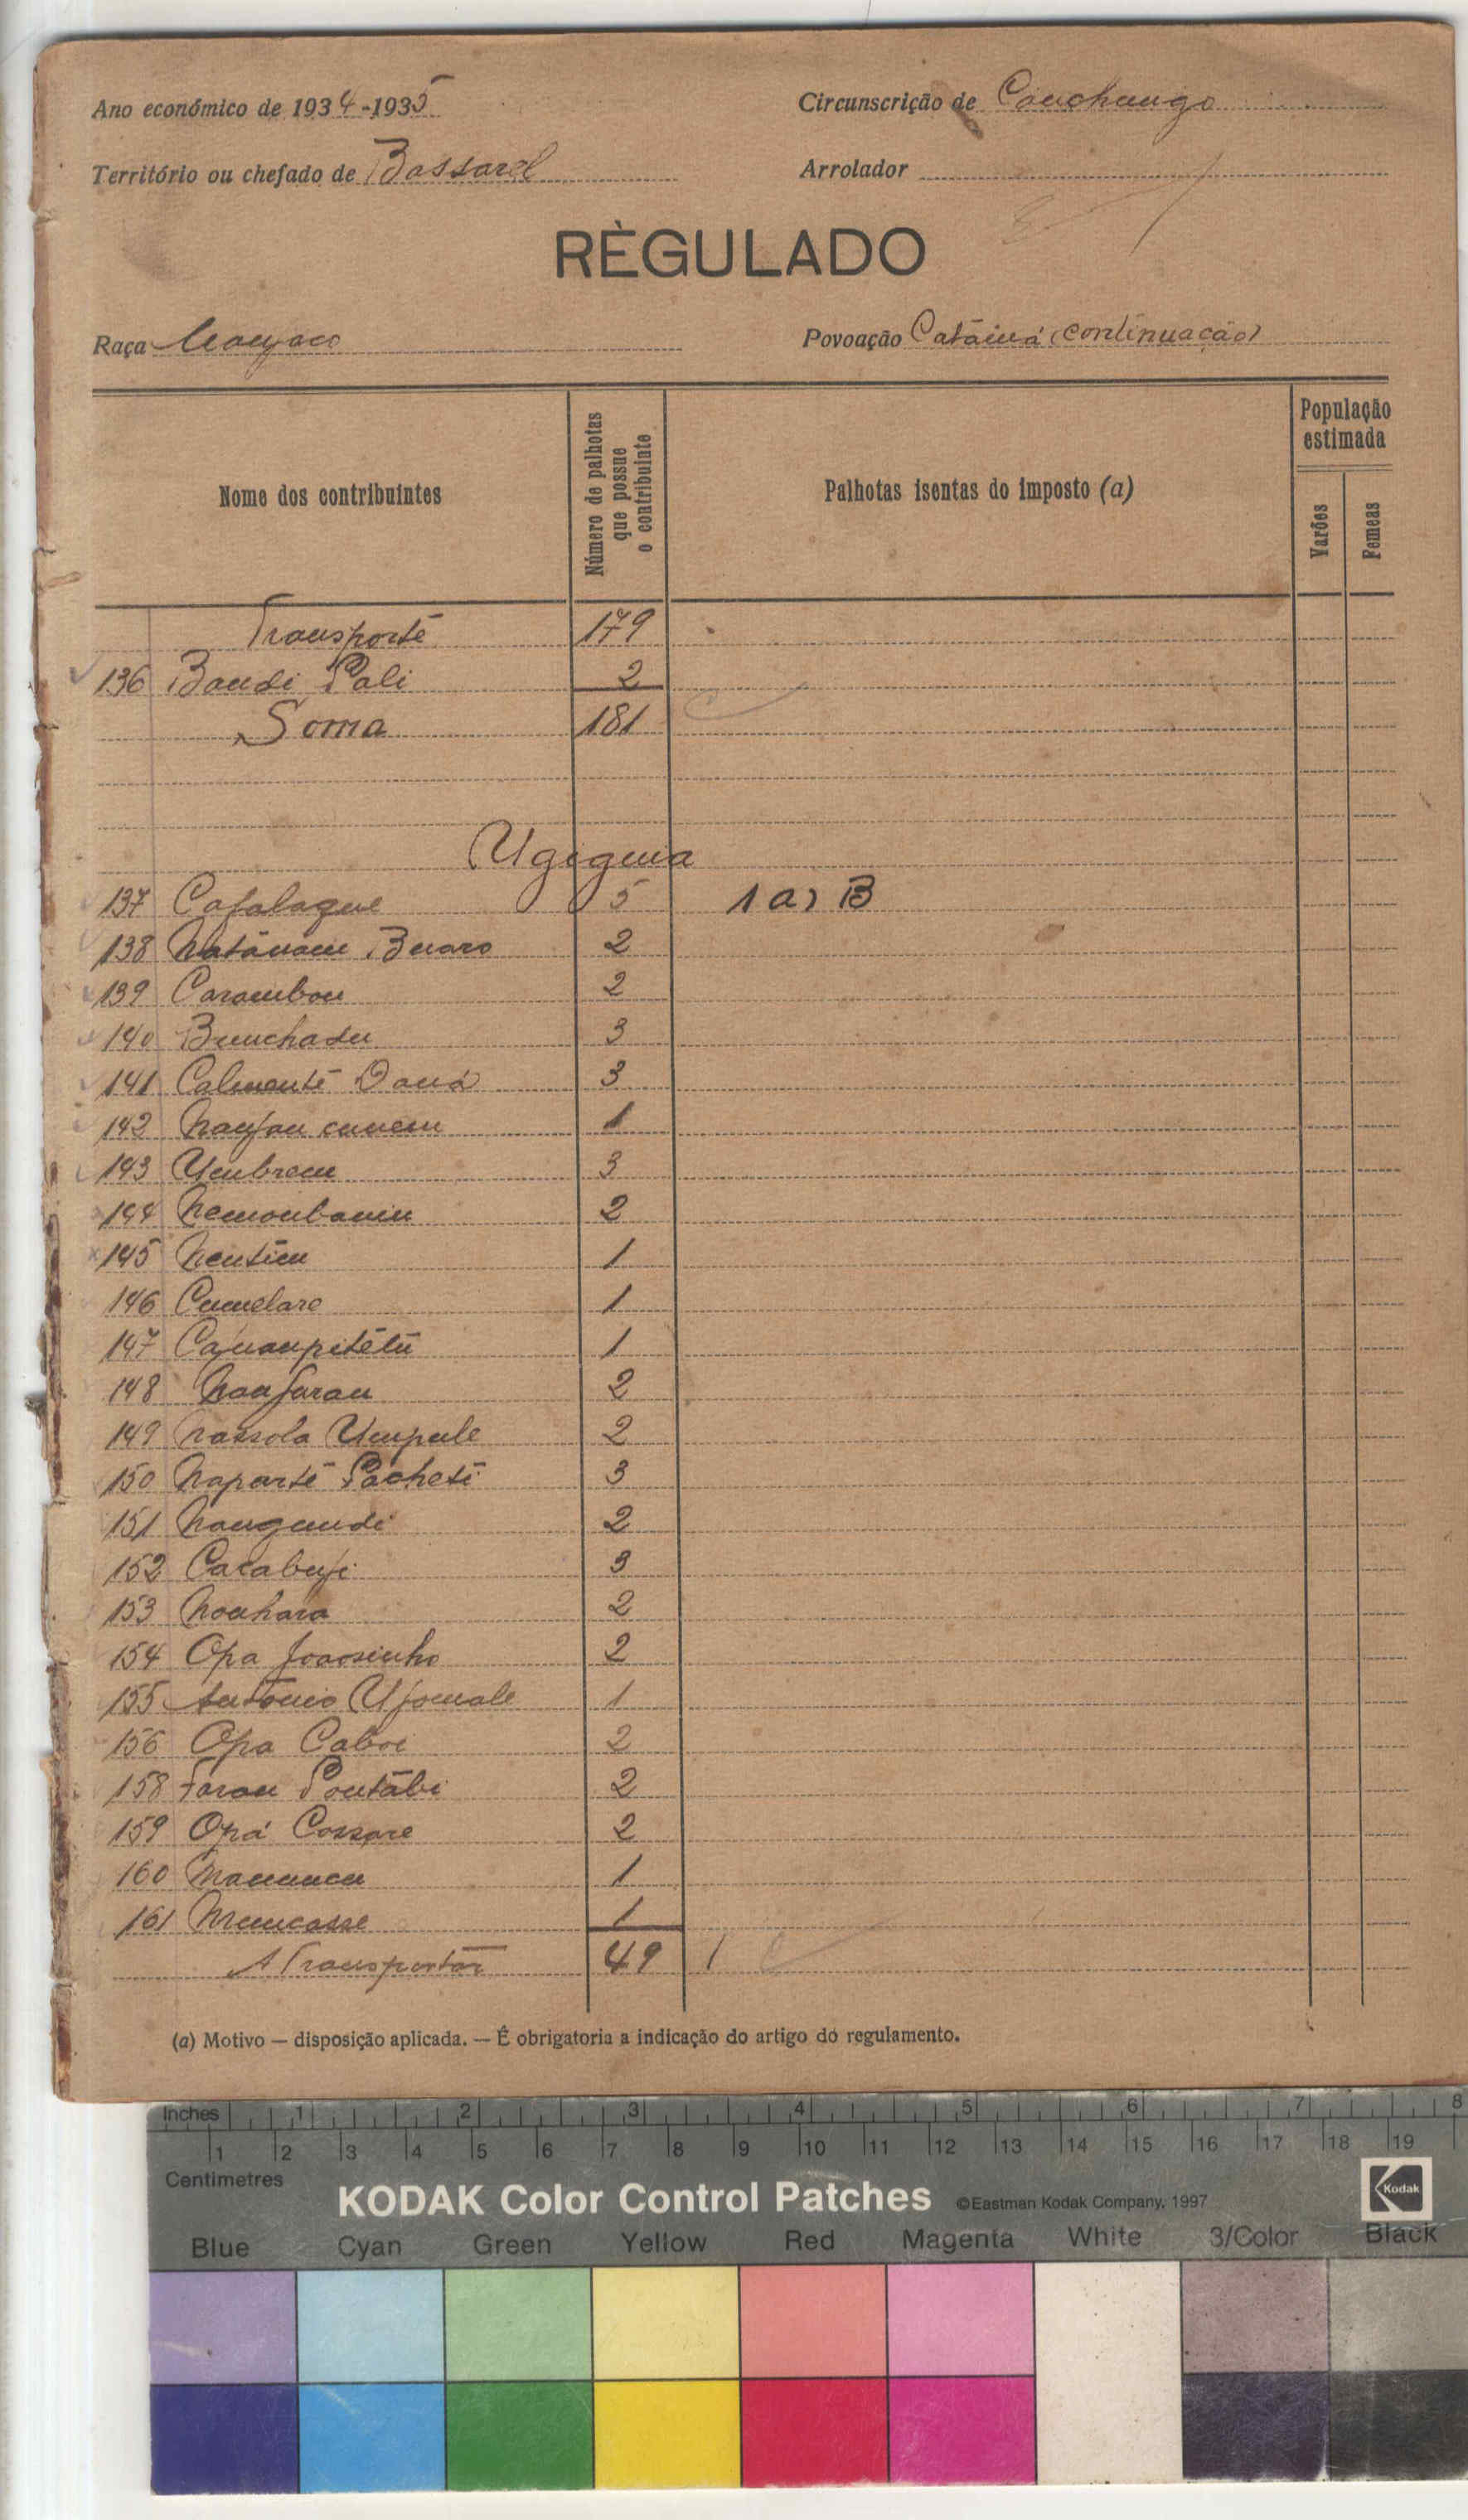 Ano económico de 1934-1935
Circunscrição de Canchungo
Território ou chefado de Bassarel
Arrolador
RÈGULADO
Raça Manjaco
Povoação Catáiná (continuação)
Nome dos contribuintes
Número de palhotas que possue o contribuinte
Palhotas isentas do imposto (a)
População estimada
Varões
Femeas
Transporte 179
136 Baudi Pali 2
Soma 181
137 Cafalague 5 1 a) B
138 Natánam Buaro 2
139 Carambou 2
140 Bunchadu 3
141 Calmenté Daná 3
142 1
143 3
144 2
145 Nentim 1
146 Cumelare 1
147 1
148 Nanfaran 2
149 Nassola Umpule 2
150 Naparté Pacheti 3
151 Nangundi 2
152 Carabufi 3
153 2
154 Opa Joaosinho 2
155 António 1
156 Opa Caboi 2
158 Faran Poutábi 2
159 Opá Cossare 2
160 1
161 1
A Transportar 49 1
(a) Motivo — disposição aplicada. — É obrigatoria a indicação do artigo do regulamento.
Inches 1 2 3 4 5 6 7 8
1 2 3 4 5 6 7 8 9 10 11 12 13 14 15 16 17 18 19
Centimetres
KODAK Color Control Patches ©Eastman Kodak Company, 1997 Kodak
Blue Cyan Green Yellow Red Magenta White 3/Color Black